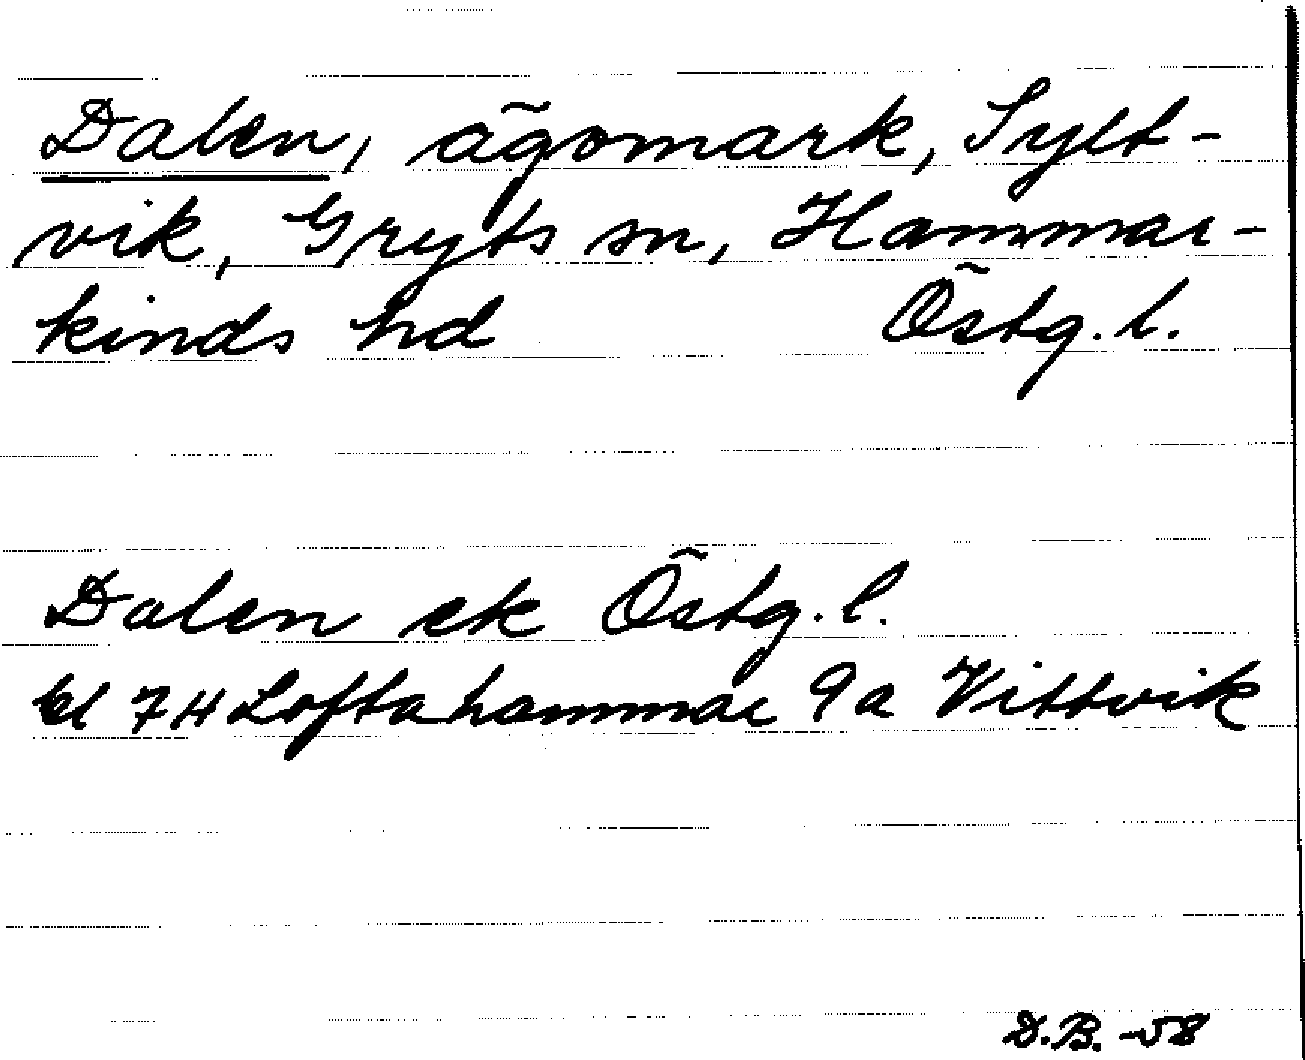 Dalen, ägomark, Sylt-
vik, Gryts sn, Hammar-
kinds hd Östg. l.
Dalen ek Östg. l.
bl 7H Loftahammar 9a Vittvik
D.B. -58